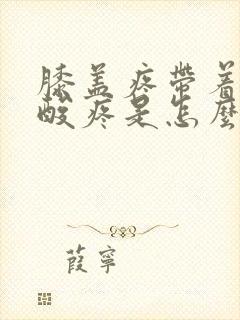 膝盖疼带着
酸疼是怎麽
葭寧